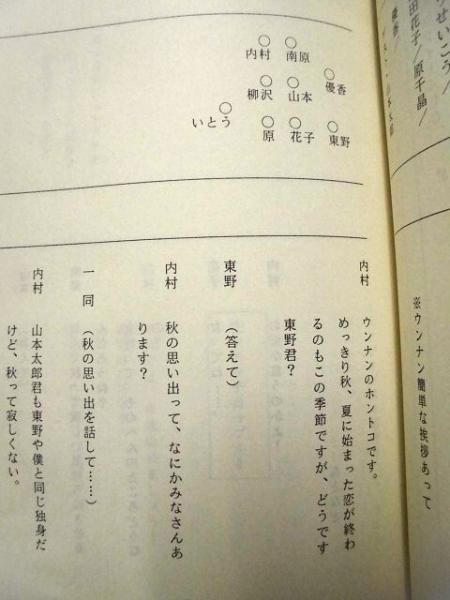 せいこう/
田花子/原千晶/
優香/
※ウンナン簡単な挨拶あって
○南原
○内村
○優香
○山本
○柳沢
○東野
○花子
○原
○いとう
内村 ウンナンのホントコです。
めっきり秋、夏に始まった恋が終わ
るのもこの季節ですが、どうです
東野君?
東野 (答えて)
内村 秋の思い出って、なにかみなさんあ
ります?
一同 (秋の思い出を話して……)
内村 山本太郎君も東野や僕と同じ独身だ
けど、秋って寂しくない。